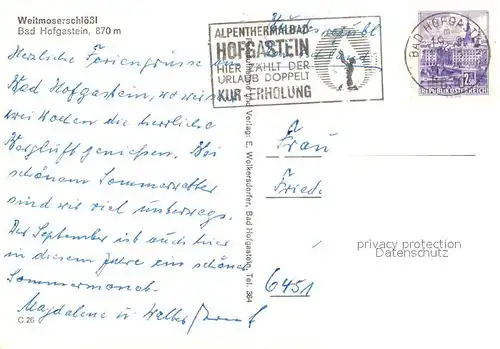 Weitmoserschlößl
Bad Hofgastein, 870 m
Herzliche Feriengrüsse aus
Bad Hofgastein, wo wir
zwei Wochen die herrliche
Bergluft geniessen. Bei
schönem Sommerwetter
sind wir viel unterwegs.
Der September ist auch hier
in diesem Jahre ein schöner
Sommermonat.
Magdalene u. Walter
C 26
ALPENTHERMALBAD
HOFGASTEIN
HIER ZÄHLT DER
URLAUB DOPPELT
KUR ERHOLUNG
BAD HOFGASTEIN
2 S
REPUBLIK ÖSTERREICH
und Verlag: E. Wolkersdorfer, Bad Hofgastein, Tel. 364
Frau
Friede
6451
privacy protection
Datenschutz